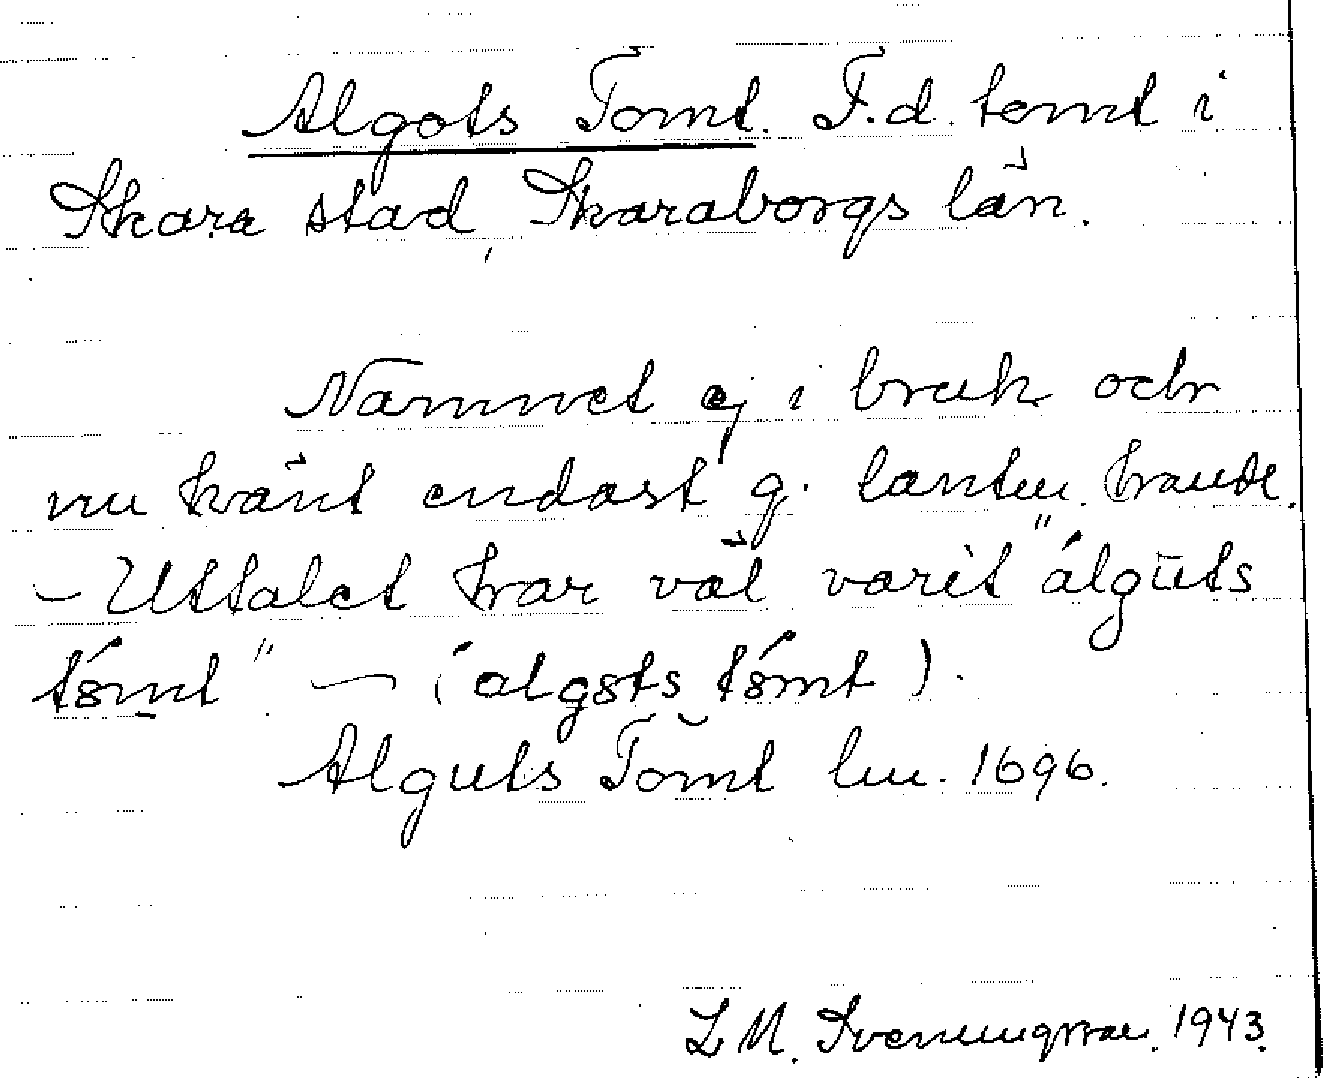 Algots Tomt. F.d. tomt i
Skara stad, Skaraborgs län.
Namnet ej i bruk och
nu känt endast g. lantm. handl.
– Uttalet har väl varit "álgūts
tómt" – (algots tómt).
Alguts Tomt lm. 1696.
L M. Svenungsson. 1943.